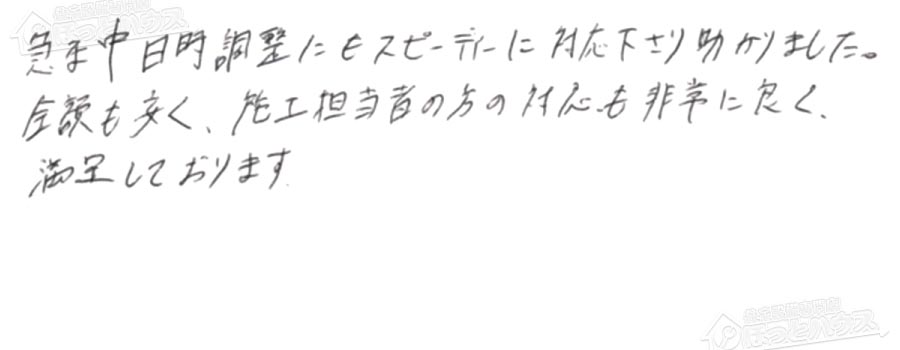 急ま中日時調整にもスピーディーに対応下さり助かりました。
金額も安く、施工担当者の方の対応も非常に良く、
満足しております
ほっとハウス